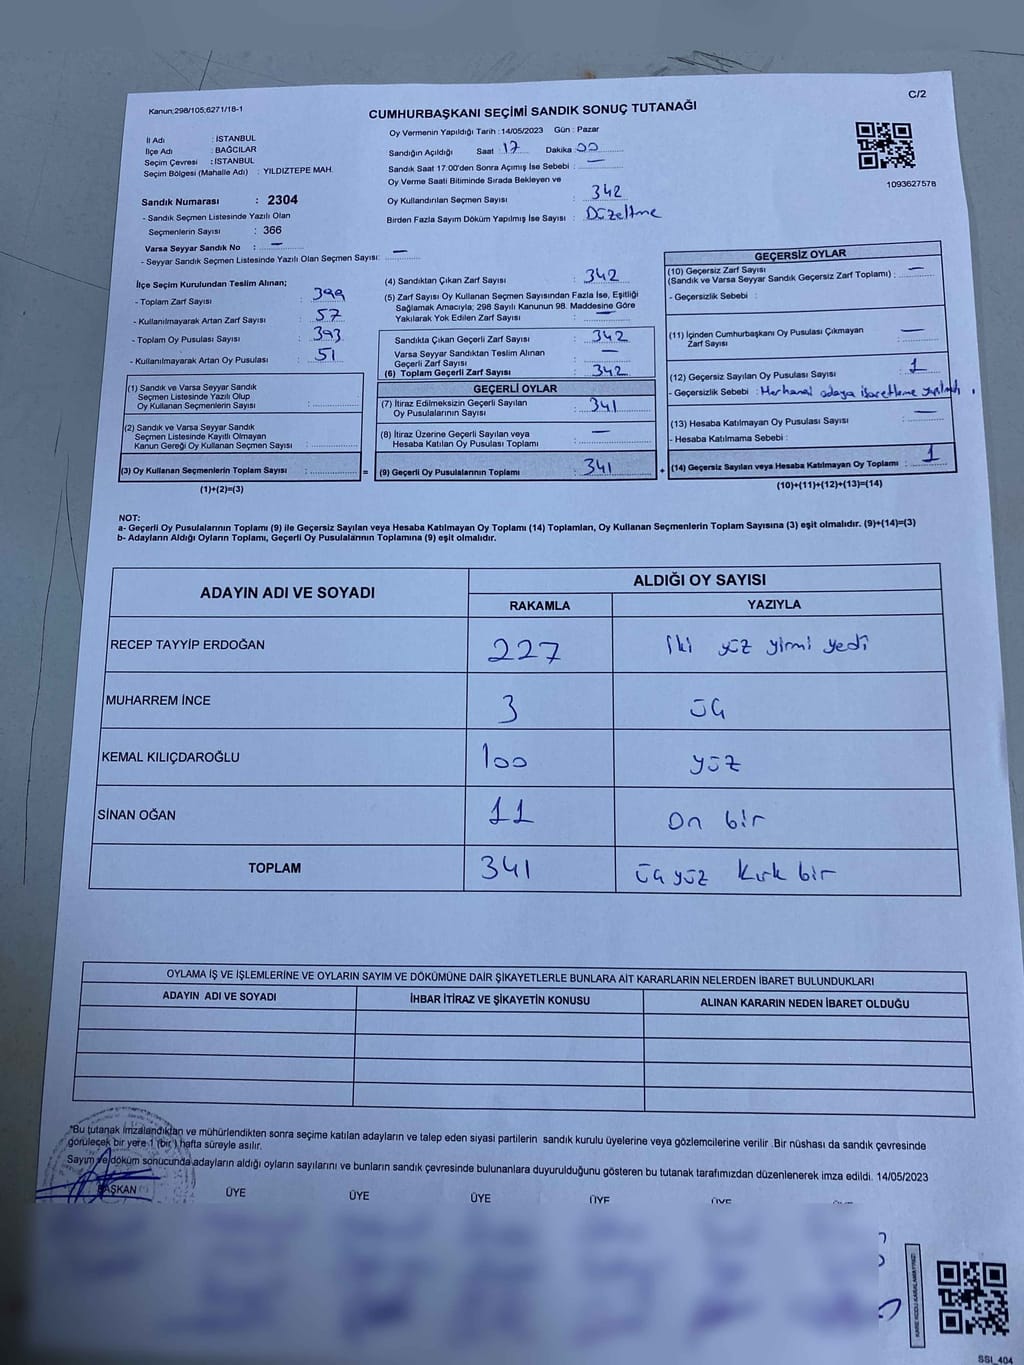 Kanun:298/105;6271/18-1
C/2
CUMHURBAŞKANI SEÇİMİ SANDIK SONUÇ TUTANAĞI
İl Adı : İSTANBUL
İlçe Adı : BAĞCILAR
Seçim Çevresi : İSTANBUL
Seçim Bölgesi (Mahalle Adı) : YILDIZTEPE MAH.
Sandık Numarası : 2304
- Sandık Seçmen Listesinde Yazılı Olan
Seçmenlerin Sayısı : 366
Varsa Seyyar Sandık No : —
- Seyyar Sandık Seçmen Listesinde Yazılı Olan Seçmen Sayısı: —
Oy Vermenin Yapıldığı Tarih : 14/05/2023 Gün : Pazar
Sandığın Açıldığı Saat : 17 Dakika : 00
Sandık Saat 17:00'den Sonra Açımış İse Sebebi : —
Oy Verme Saati Bitiminde Sırada Bekleyen ve
Oy Kullandırılan Seçmen Sayısı : 342
Birden Fazla Sayım Döküm Yapılmış İse Sayısı : Düzeltme
1093627578
İlçe Seçim Kurulundan Teslim Alınan;
- Toplam Zarf Sayısı : 399
- Kullanılmayarak Artan Zarf Sayısı : 57
- Toplam Oy Pusulası Sayısı : 393
- Kullanılmayarak Artan Oy Pusulası : 51
(1) Sandık ve Varsa Seyyar Sandık
Seçmen Listesinde Yazılı Olup
Oy Kullanan Seçmenlerin Sayısı :
(2) Sandık ve Varsa Seyyar Sandık
Seçmen Listesinde Kayılı Olmayan
Kanun Gereği Oy Kullanan Seçmen Sayısı :
(3) Oy Kullanan Seçmenlerin Toplam Sayısı : =
(1)+(2)=(3)
(4) Sandıktan Çıkan Zarf Sayısı : 342
(5) Zarf Sayısı Oy Kullanan Seçmen Sayısından Fazla İse, Eşitliği
Sağlamak Amacıyla; 298 Sayılı Kanunun 98. Maddesine Göre
Yakılarak Yok Edilen Zarf Sayısı : —
Sandıkta Çıkan Geçerli Zarf Sayısı : 342
Varsa Seyyar Sandıktan Teslim Alınan
Geçerli Zarf Sayısı : —
(6) Toplam Geçerli Zarf Sayısı : 342
GEÇERLİ OYLAR
(7) İtiraz Edilmeksizin Geçerli Sayılan
Oy Pusulalarının Sayısı : 341
(8) İtiraz Üzerine Geçerli Sayılan veya
Hesaba Katılan Oy Pusulası Toplamı : —
(9) Geçerli Oy Pusulalarının Toplamı : 341 +
GEÇERSİZ OYLAR
(10) Geçersiz Zarf Sayısı
(Sandık ve Varsa Seyyar Sandık Geçersiz Zarf Toplamı) : —
- Geçersizlik Sebebi :
(11) İçinden Cumhurbaşkanı Oy Pusulası Çıkmayan
Zarf Sayısı : —
(12) Geçersiz Sayılan Oy Pusulası Sayısı : 1
- Geçersizlik Sebebi : Herhangi adaya işaretleme
(13) Hesaba Katılmayan Oy Pusulası Sayısı : —
- Hesaba Katılmama Sebebi :
(14) Geçersiz Sayılan veya Hesaba Katılmayan Oy Toplamı : 1
(10)+(11)+(12)+(13)=(14)
NOT:
a- Geçerli Oy Pusulalarının Toplamı (9) ile Geçersiz Sayılan veya Hesaba Katılmayan Oy Toplamı (14) Toplamları, Oy Kullanan Seçmenlerin Toplam Sayısına (3) eşit olmalıdır. (9)+(14)=(3)
b- Adayların Aldığı Oyların Toplamı, Geçerli Oy Pusulalarının Toplamına (9) eşit olmalıdır.
ADAYIN ADI VE SOYADI
ALDIĞI OY SAYISI
RAKAMLA YAZIYLA
RECEP TAYYİP ERDOĞAN 227 İki yüz yirmi yedi
MUHARREM İNCE 3 üç
KEMAL KILIÇDAROĞLU 100 yüz
SİNAN OĞAN 11 On bir
TOPLAM 341 üç yüz kırk bir
OYLAMA İŞ VE İŞLEMLERİNE VE OYLARIN SAYIM VE DÖKÜMÜNE DAİR ŞİKAYETLERLE BUNLARA AİT KARARLARIN NELERDEN İBARET BULUNDUKLARI
ADAYIN ADI VE SOYADI İHBAR İTİRAZ VE ŞİKAYETİN KONUSU ALINAN KARARIN NEDEN İBARET OLDUĞU
*Bu tutanak imzalandıktan ve mühürlendikten sonra seçime katılan adayların ve talep eden siyasi partilerin sandık kurulu üyelerine veya gözlemcilerine verilir .Bir nüshası da sandık çevresinde
görülecek bir yere 1 (bir ) hafta süreyle asılır.
Sayım ve döküm sonucunda adayların aldığı oyların sayılarını ve bunların sandık çevresinde bulunanlara duyurulduğunu gösteren bu tutanak tarafımızdan düzenlenerek imza edildi. 14/05/2023
BAŞKAN ÜYE ÜYE ÜYE ÜYE ÜYE
KARE KODU KARALAMAYINIZ!
SSI_404